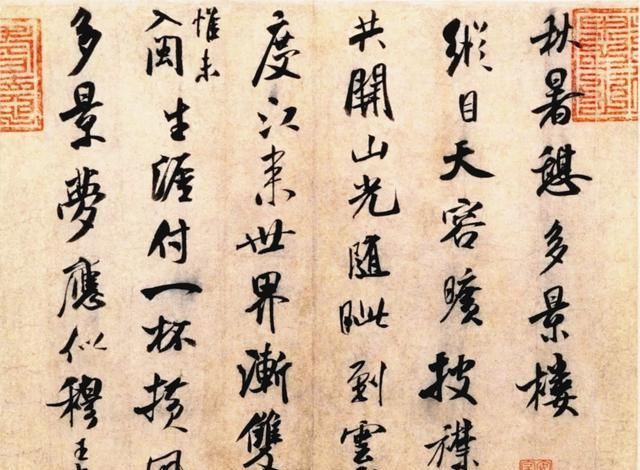 秋暑憩多景樓
縱目天容曠披襟
共開山光隨眦到雲
度江来世界漸雙
惟未
入閩生涯付一杯横風
多景夢應似穆王